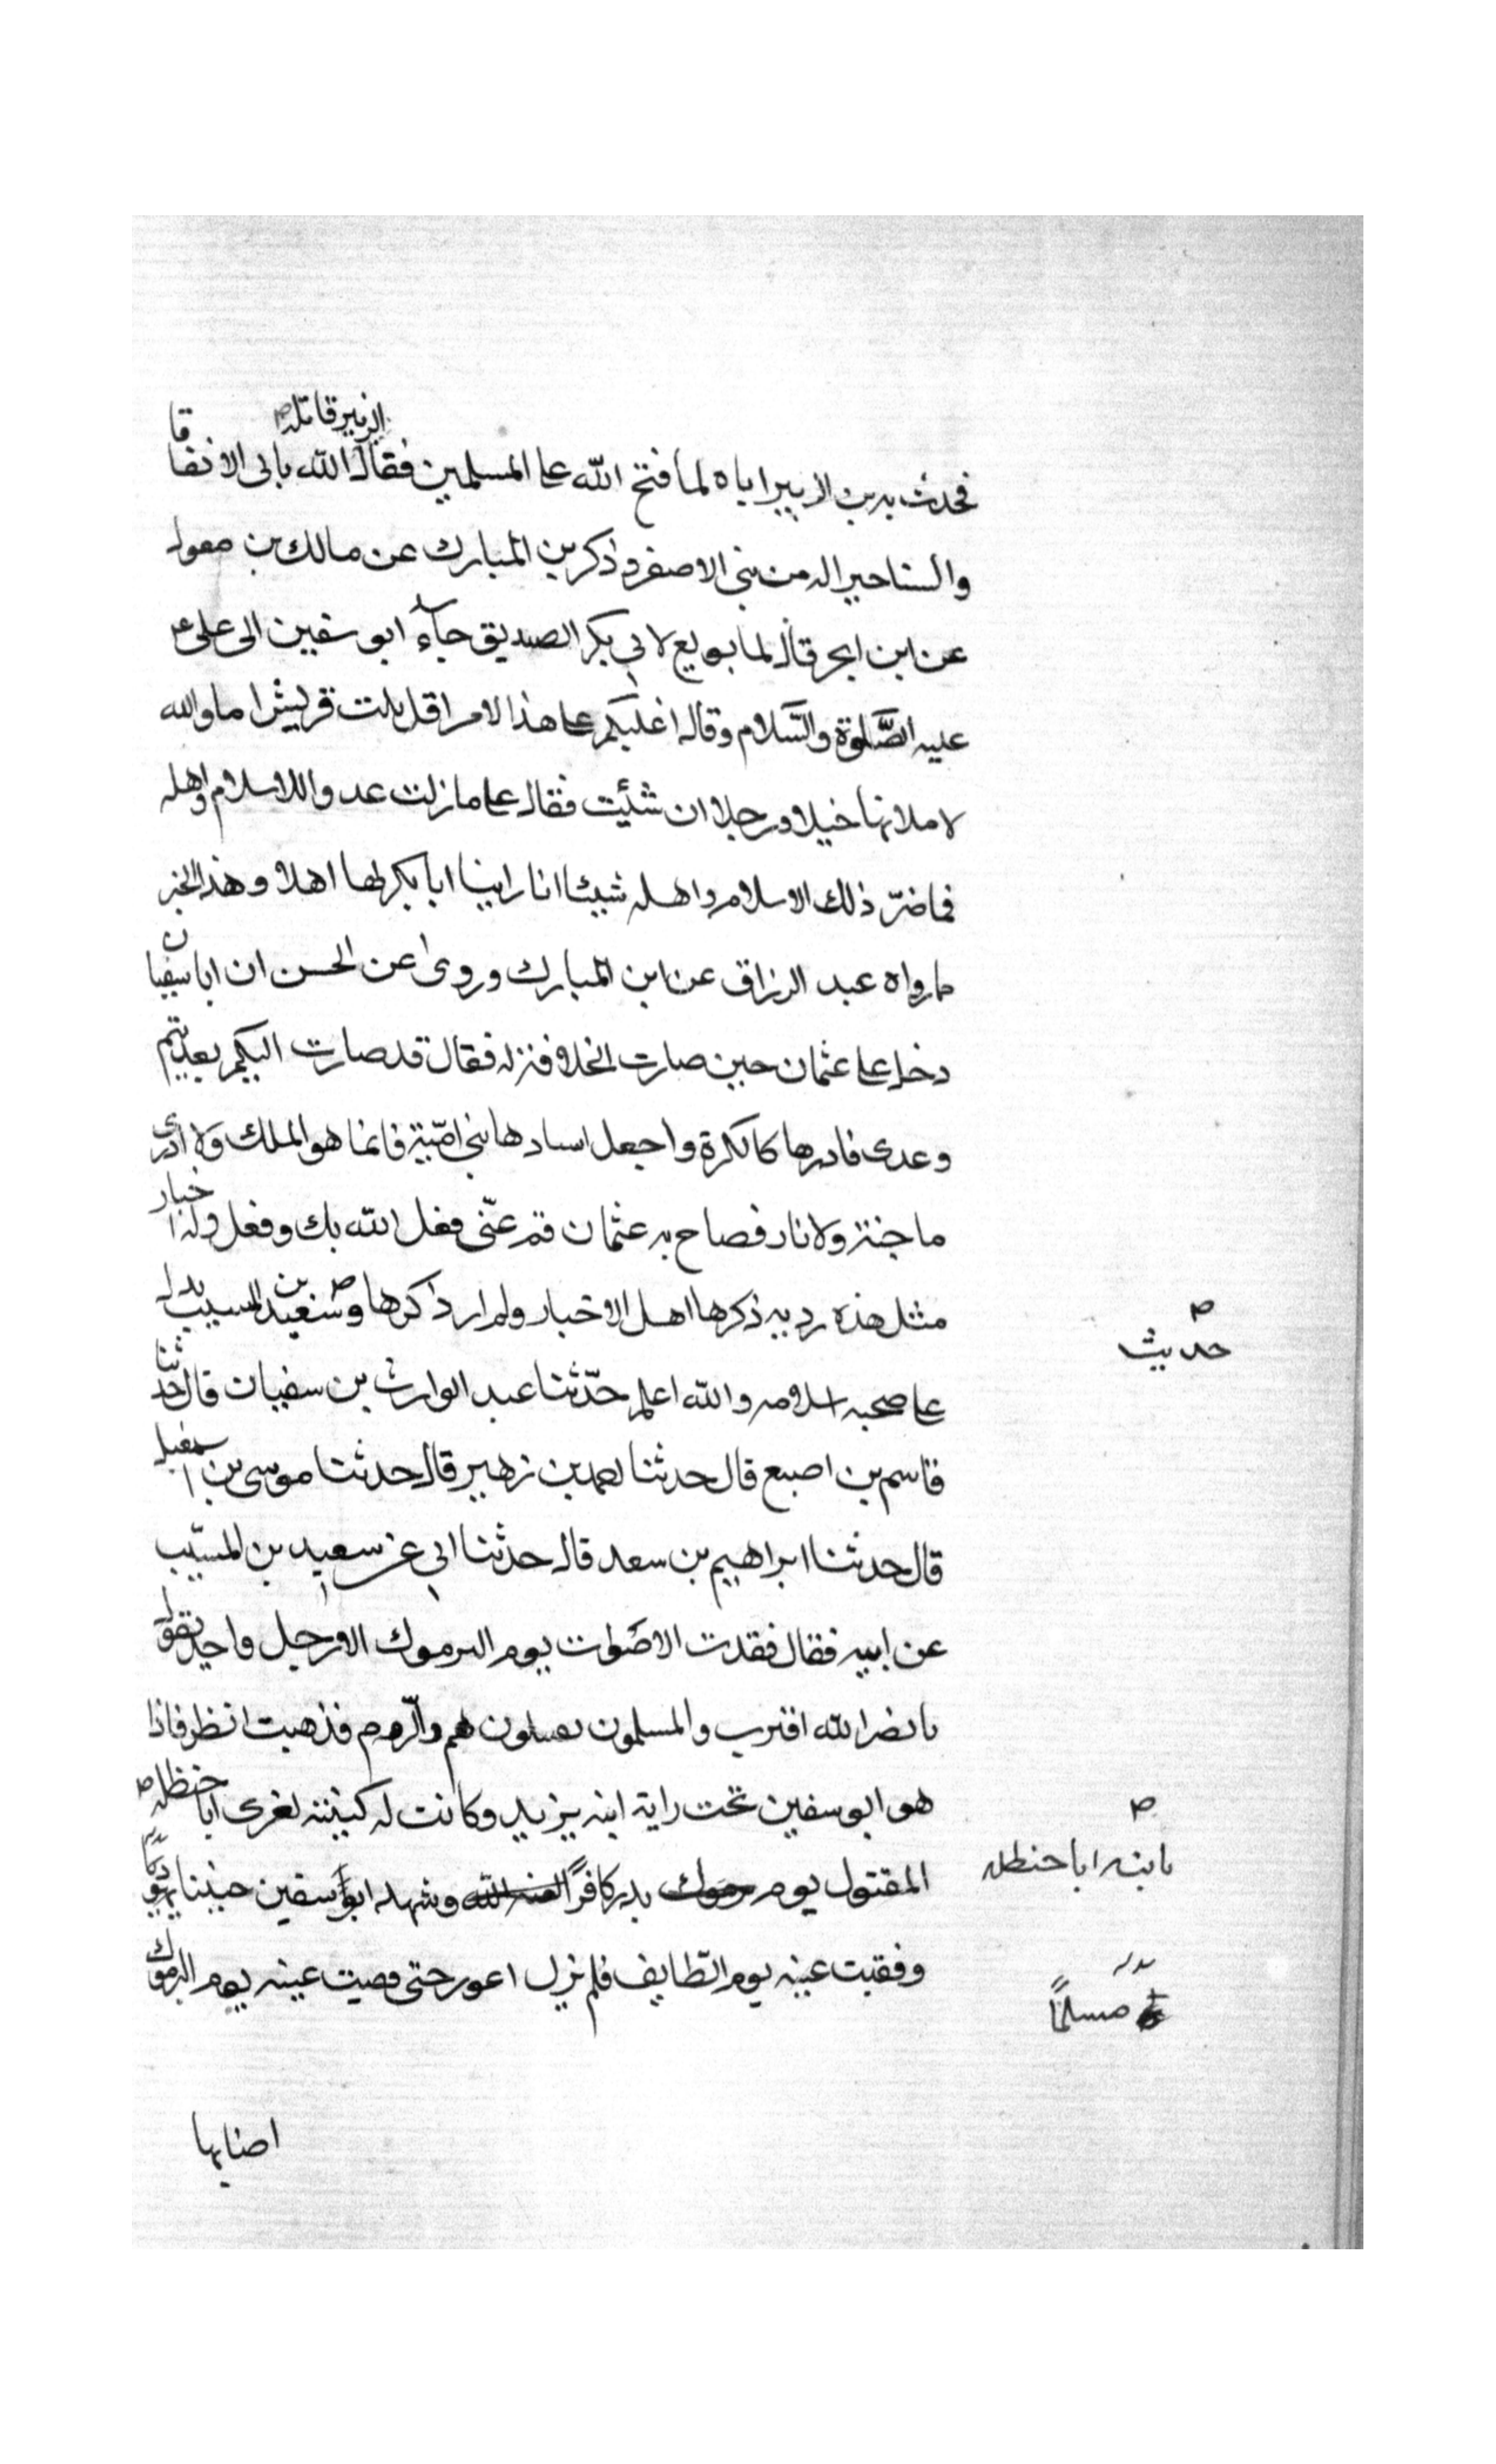 الزبير قاتله ص
فحدث به بن الزبير اباه لما فتح الله على المسلمين فقال الله يابى الا نفاقا
والسنا خير اله من بنى الاصفر وذكر بن المبارك عن مالك بن مغول
عن ابن ابجر قال لما بويع لابي بكر الصديق جاء ابو سفين الى على
عليه الصّلوة والسّلام وقال اغلبكم على هذا الامر اقل بلت قريش اما والله
لاملانها خيلا ورجلا ان شئت فقال على ما زلت عدوا للاسلام واهله
فما ضرّ ذلك الاسلام واهله شيئا انا راينا ابا بكر لها اهلا وهذا الخبر
مما رواه عبد الرزاق عن ابن المبارك وروى عن الحسن ان ابا سفيان
دخل على عثمان حين صارت الخلافة له فقال قد صارت اليكم بعد تيم
وعدى فادرها كالكرة واجعل اسادها بنى اميّة فانما هو الملك ولا ادرى
ما جنة ولا نار فصاح به عثمان قم عنّى فعل الله بك وفعل وله اخبار
مثل هذه رديه ذكرها اهل الاخبار ولم ار ذاكرها و سعيد بن المسيب يدل
حديث ص
على صحبه اسلامه والله اعلم حدّثنا عبد الوارث بن سفيان قال حدثنا
قاسم بن اصبع قال حدثنا احمد بن زهير قال حدثنا موسى بن اسمعيل
قال حدثنا ابراهيم بن سعد قال حدثنا ابى عن سعيد بن المسيّب
عن ابيه فقال فقدت الاصوات يوم اليرموك الا رجل واحد يقول
يا نصر الله اقترب والمسلمون يقتتلون هم والرّوم فذهبت انظر فاذا
هو ابو سفين تحت راية ابنه يزيد وكانت له كنيته لغرى ابا حنظله ص
بابنه ابا حنظله ص
المقتول يوم يرموك بدر كافرًا لعنه الله وشهد ابو سفين حنينا
وفقيت عينه يوم الطّايف فلم يزل اعور حتى فقيت عينه يوم اليرموك
مسلمًا
اصابها